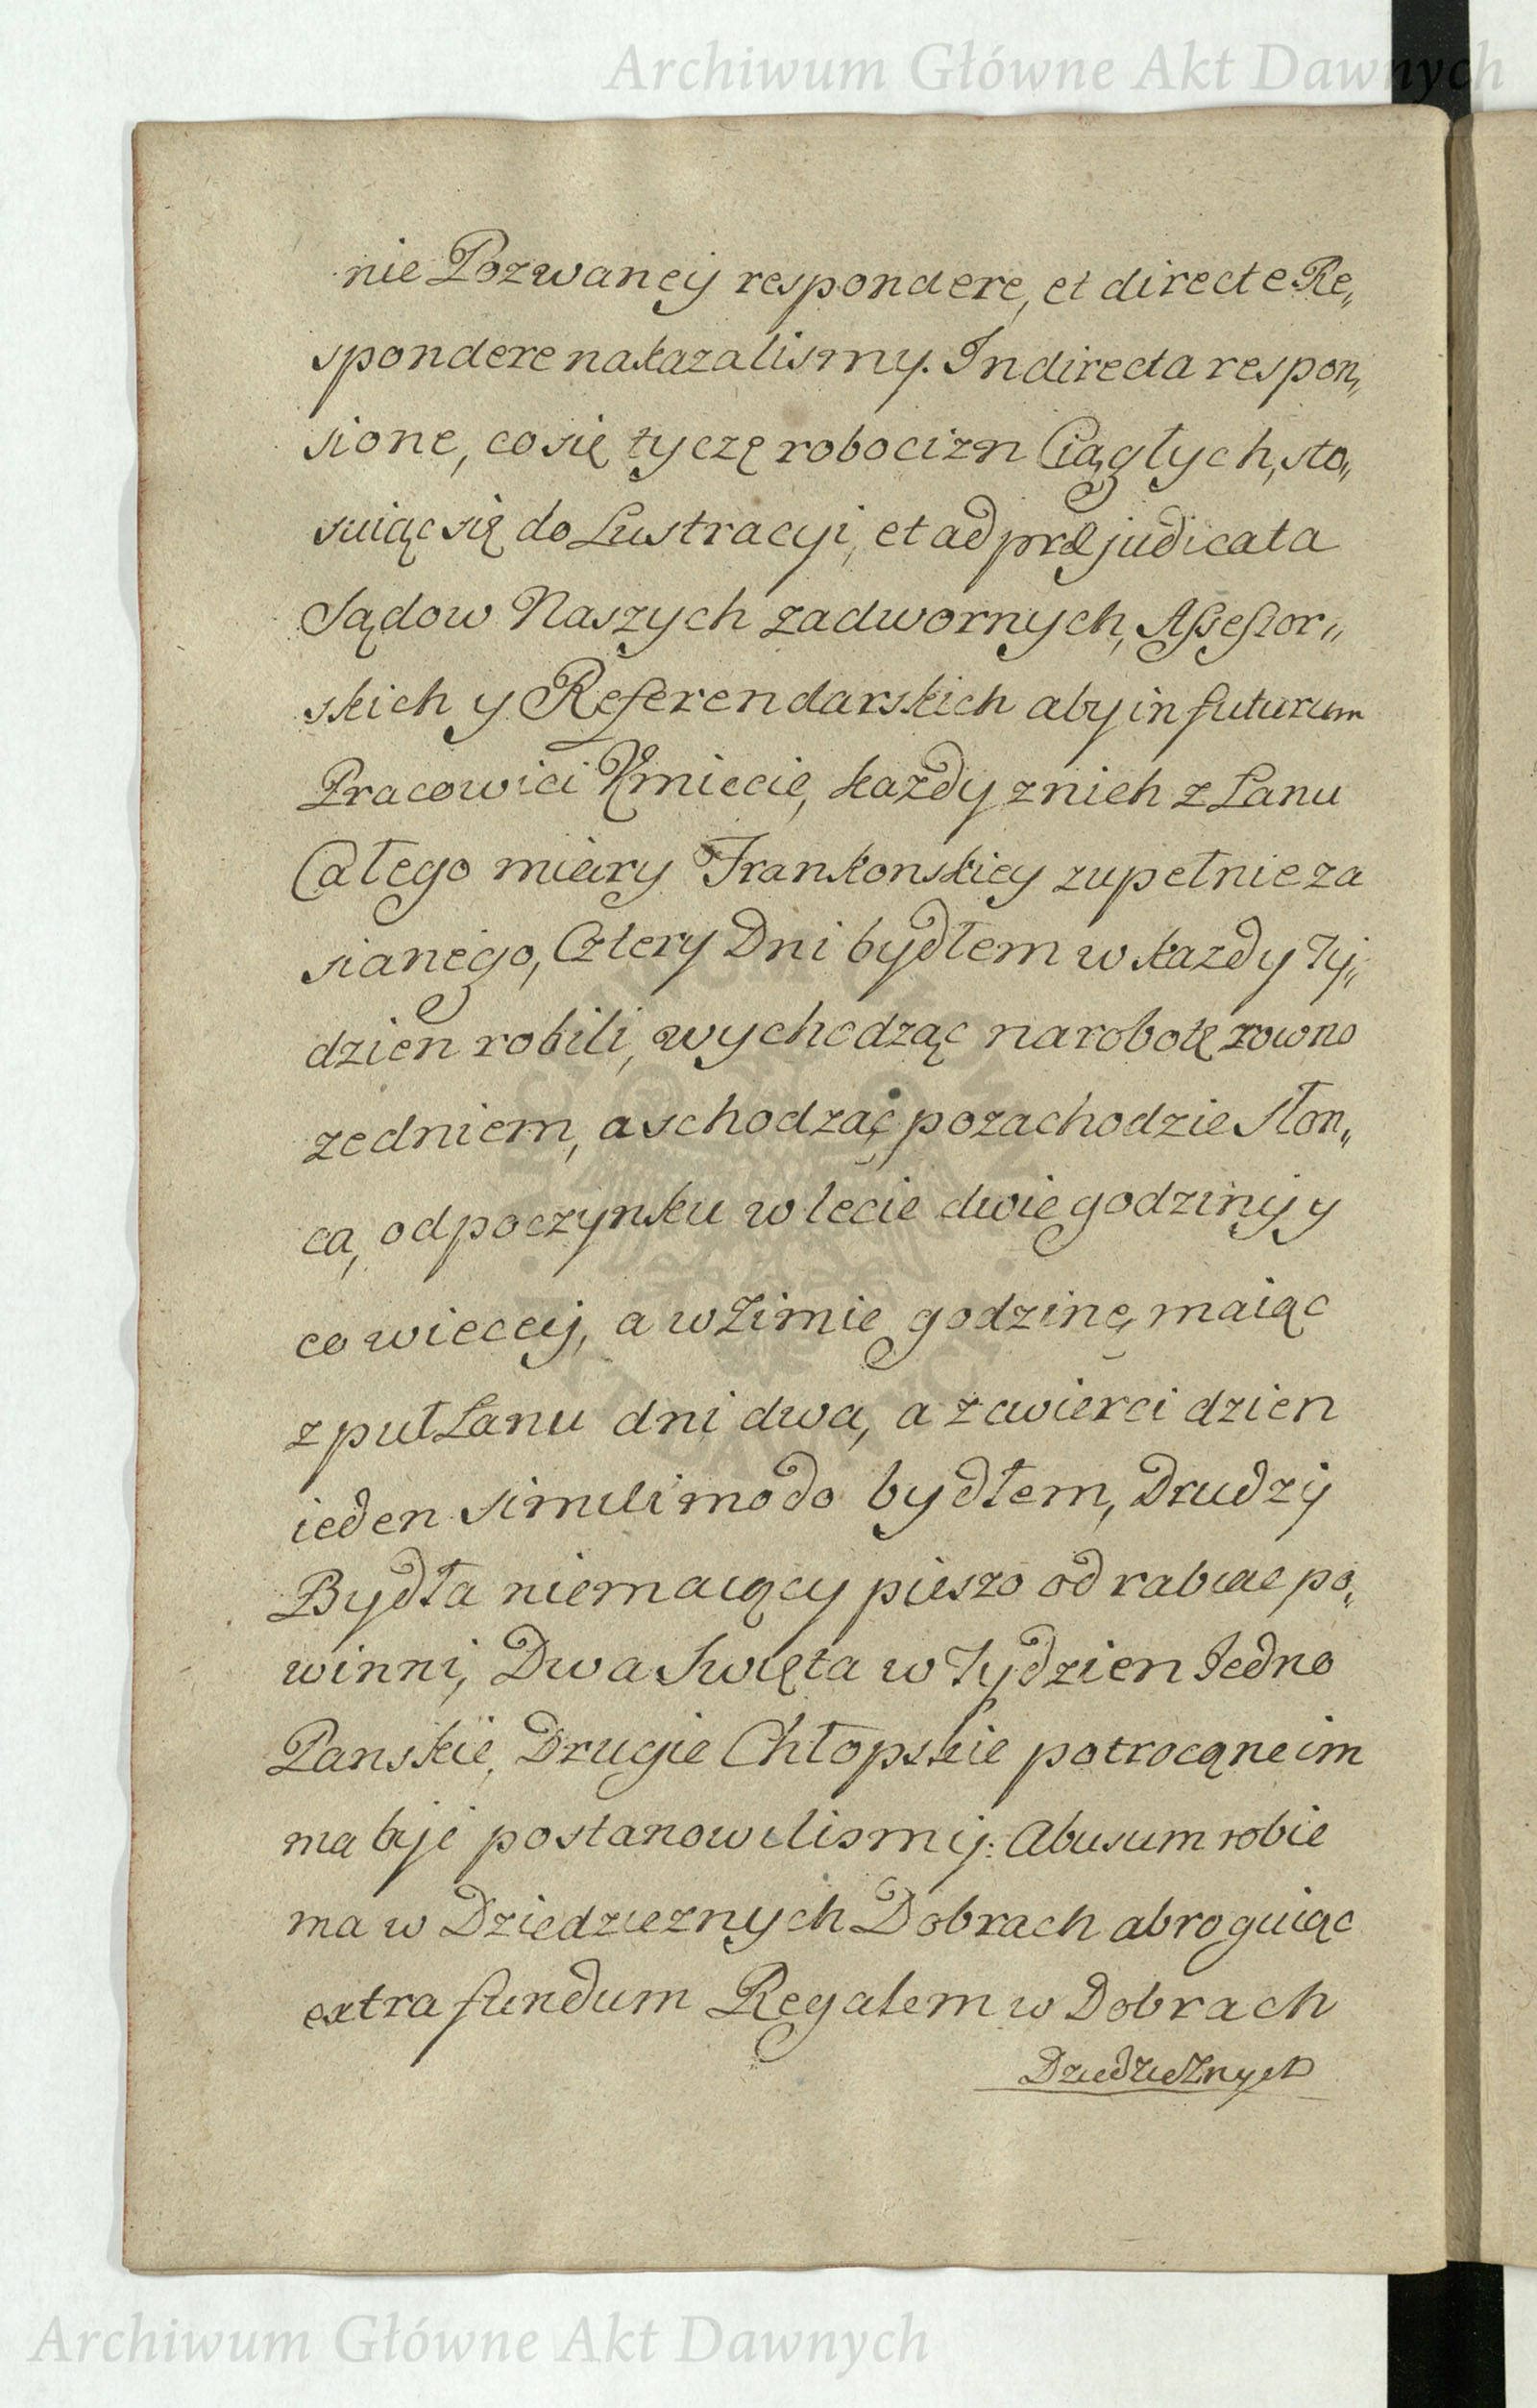 Archiwum Główne Akt Dawnych
nie Pozwaney respondere, et directe Re„
spondere nakazalismy. In directa respon„
sione, co się tyczę robocizn Ciągłych, sto„
suiąc się do Lustracyi, et ad præjudicata
Sądow Naszych zadwornych, Assessor„
skich y Referendarskich aby in futurum
Pracowici Kmiecie, każdy z nich z Łanu
Całego miary Frankonskiey zupełnie za
sianego, Cztery Dni bydłem w kazdy Ty„
dzien robili, wychodząc na robotę rowno
ze dniem, a schodząc po zachodzie Słon„
ca, odpoczynku w lecie dwie godziny y
co wiecey, a w Zimie godzinę maiąc
z puł Łanu dni dwa, a z cwierci dzien
ieden simili modo bydłem, Drudzy
Bydła niemaiący pieszo odrabiac po„
winni, Dwa Swięta w Tydzien Jedno
Panskie, Drugie Chłopskie potrocąne im
ma byjc postanowilismy. Abusum robie
ma w Dziedzicznych Dobrach abroguiąc
extra fundum Regalem w Dobrach
Dziedzicznych
Archiwum Główne Akt Dawnych